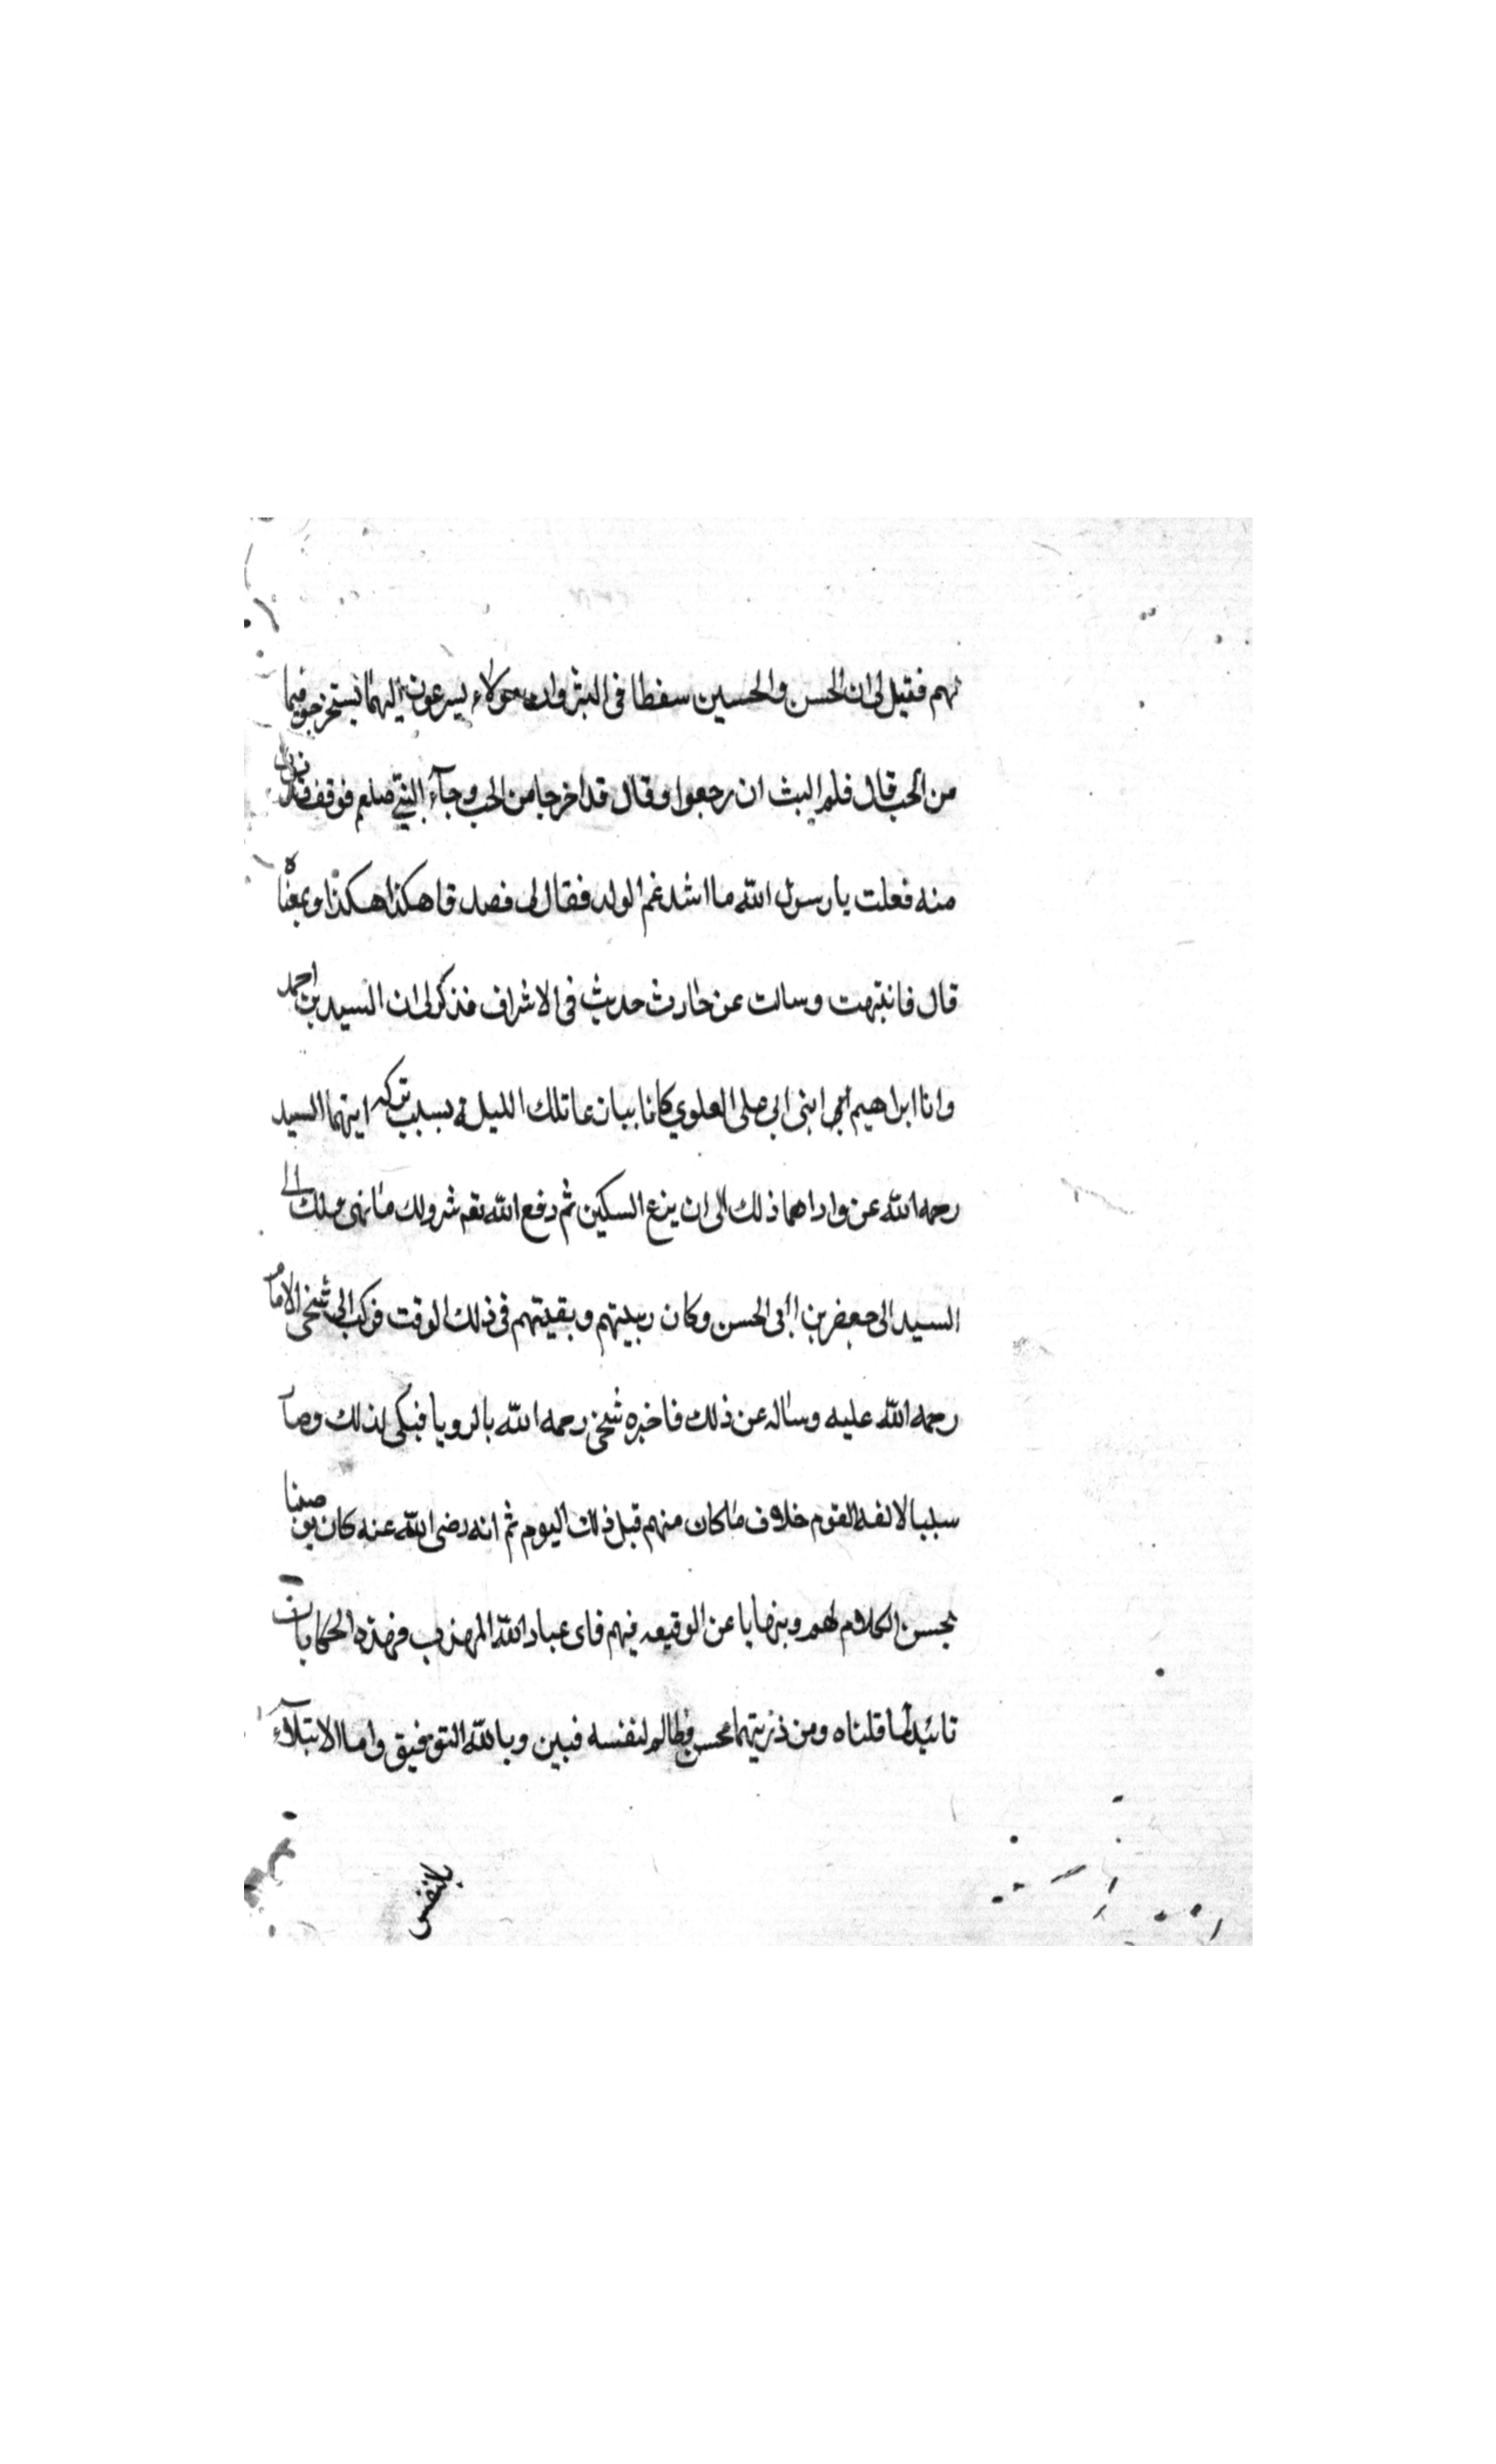 نهم فقيل لى ان الحسن والحسين سقطا فى البئر وان هولاء يسرعون اليهما نيستخرجوهما
من الجب قال فلم البث ان رجعوا وقال قد اخرجا من الجب وجآء النبى صلعم فوقف
منه فعلت يا رسول الله ما اشد غم الولد فقال لى فصد قا هكذا هكذا ويمعناه
قال فانتبهت وسالت عن حادث حديث فى الاشراف فذكر لى ان السيد بن احمد
وانا ابراهيم ابنى ابى على العلوي كانا تلك الليل بسبب تركه ابيهما السيد
رحمه الله عن وا داهما ذلك الى ان ينزع السكين ثم دفع الله شر ولك
السيد الى جعفر بن ابى الحسن وكان وبقيتهم فى ذلك الوقت فركب الى شيخى الامام
رحمه الله عليه وساله عن ذلك فاخبره شيخى رحمه الله بالرويا فبكى لذلك وصار
سببا لالفه القوم خلاف ما كان منهم قبل ذلك اليوم ثم انه رضى الله عنه كان يوصينا
بحسن الكلام لهم وينهانا عن الوقيعه فيهم فاى عباد الله المهذب فهذه الحكايات
تائيد لما قلناه ومن ذريتهما محسن وظالم لنفسه مبين وبالله التوفيق واما الابتلآء
بالنفس